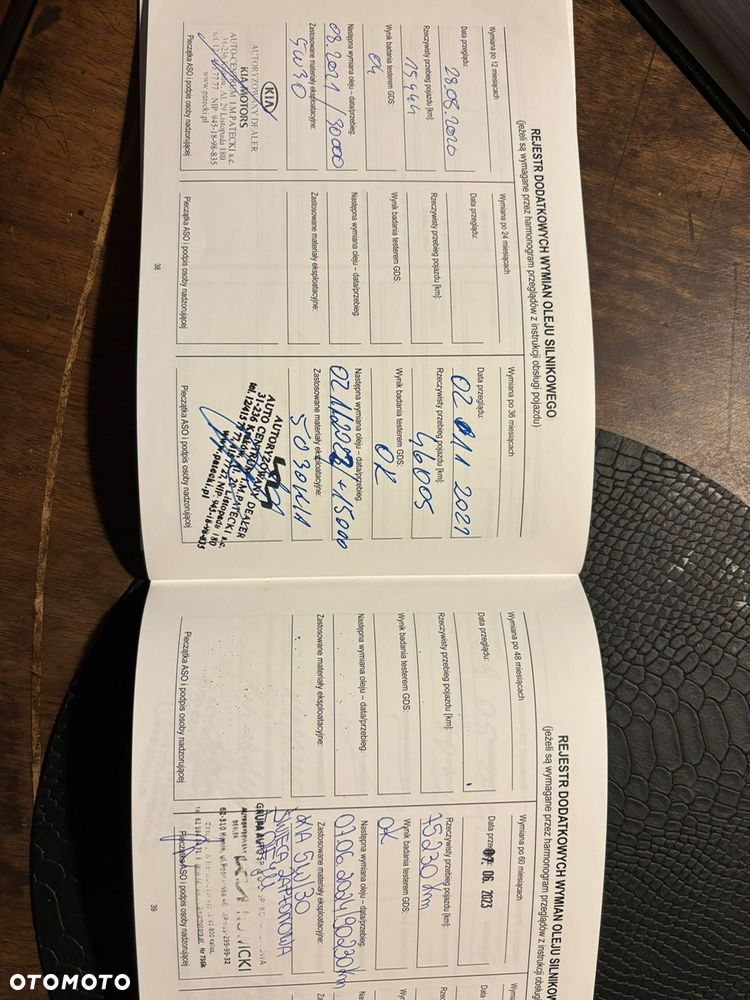 REJESTR DODATKOWYCH WYMIAN OLEJU SILNIKOWEGO
(jeżeli są wymagane przez harmonogram przeglądów z instrukcji obsługi pojazdu)
Wymiana po 12 miesiącach
Data przeglądu:
28.08.2020
Rzeczywisty przebieg pojazdu [km]:
15944
Wynik badania testerem GDS:
Ok
Następna wymiana oleju – data/przebieg.
08.2021/30000
Zastosowane materiały eksploatacyjne:
5W30
KIA
AUTORYZOWANY DEALER
KIA MOTORS
AUTO-CENTRUM I.M.PATECKI s.c.
31-236 Kraków, Al. 29 Listopada 180
NIP 945-18-98-835
www.patecki.pl
Pieczątka ASO i podpis osoby nadzorującej
Wymiana po 24 miesiącach
Data przeglądu:
Rzeczywisty przebieg pojazdu [km]:
Wynik badania testerem GDS:
Następna wymiana oleju – data/przebieg.
Zastosowane materiały eksploatacyjne:
Pieczątka ASO i podpis osoby nadzorującej
38
Wymiana po 36 miesiącach
Data przeglądu:
02 11 2021
Rzeczywisty przebieg pojazdu [km]:
46005
Wynik badania testerem GDS:
OK
Następna wymiana oleju – data/przebieg.
+15000
Zastosowane materiały eksploatacyjne:
AUTORYZOWANY DEALER
AUTO CENTRUM I.M.PATECKI s.c.
31-236 Kraków, Al. 29 Listopada 180
NIP: 945-18-98-835
www.patecki.pl
Pieczątka ASO i podpis osoby nadzorującej
REJESTR DODATKOWYCH WYMIAN OLEJU SILNIKOWEGO
(jeżeli są wymagane przez harmonogram przeglądów z instrukcji obsługi
Wymiana po 48 miesiącach
Data przeglądu:
Rzeczywisty przebieg pojazdu [km]:
Wynik badania testerem GDS:
Następna wymiana oleju – data/przebieg.
Zastosowane materiały eksploatacyjne:
Pieczątka ASO i podpis osoby nadzorującej
Wymiana po 60 miesiącach
07. 06. 2023
Rzeczywisty przebieg pojazdu [km]:
75230 km
Wynik badania testerem GDS:
OK
Następna wymiana oleju – data/przebieg.
07.06.2024/90230km
Zastosowane materiały eksploatacyjne:
KIA 5W/30
ŚWIECA ZAPŁONOWA
GRUPA AUTO
NOWICKI
Pieczątka ASO i podpis osoby nadzorującej
39
OTOMOTO